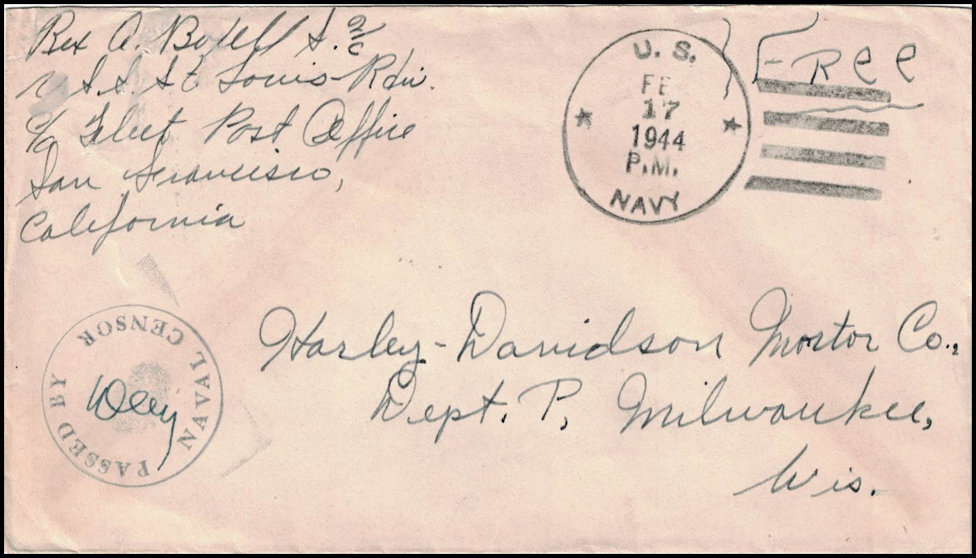 Rex A. Bozell S. 2/c
U.S.S. St Louis Rdiv.
c/o Fleet Post Office
San Francisco,
California
U.S.
FE
17
1944
P.M.
NAVY
Free
PASSED BY NAVAL CENSOR
Harley-Davidson Mortor Co.,
Dept. P, Milwaukee,
Wis.